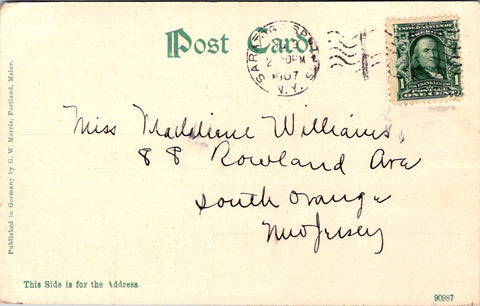 Post Card
SARATOGA SPRINGS
1907
N.Y.
UNITED STATES OF AMERICA
FRANKLIN
POSTAGE
ONE CENT
Miss Madeliene Williams,
88 Rowland Ave
South Orange
New Jersey
Published in Germany by G. W. Morris, Portland, Maine.
This Side is for the Address.
90987